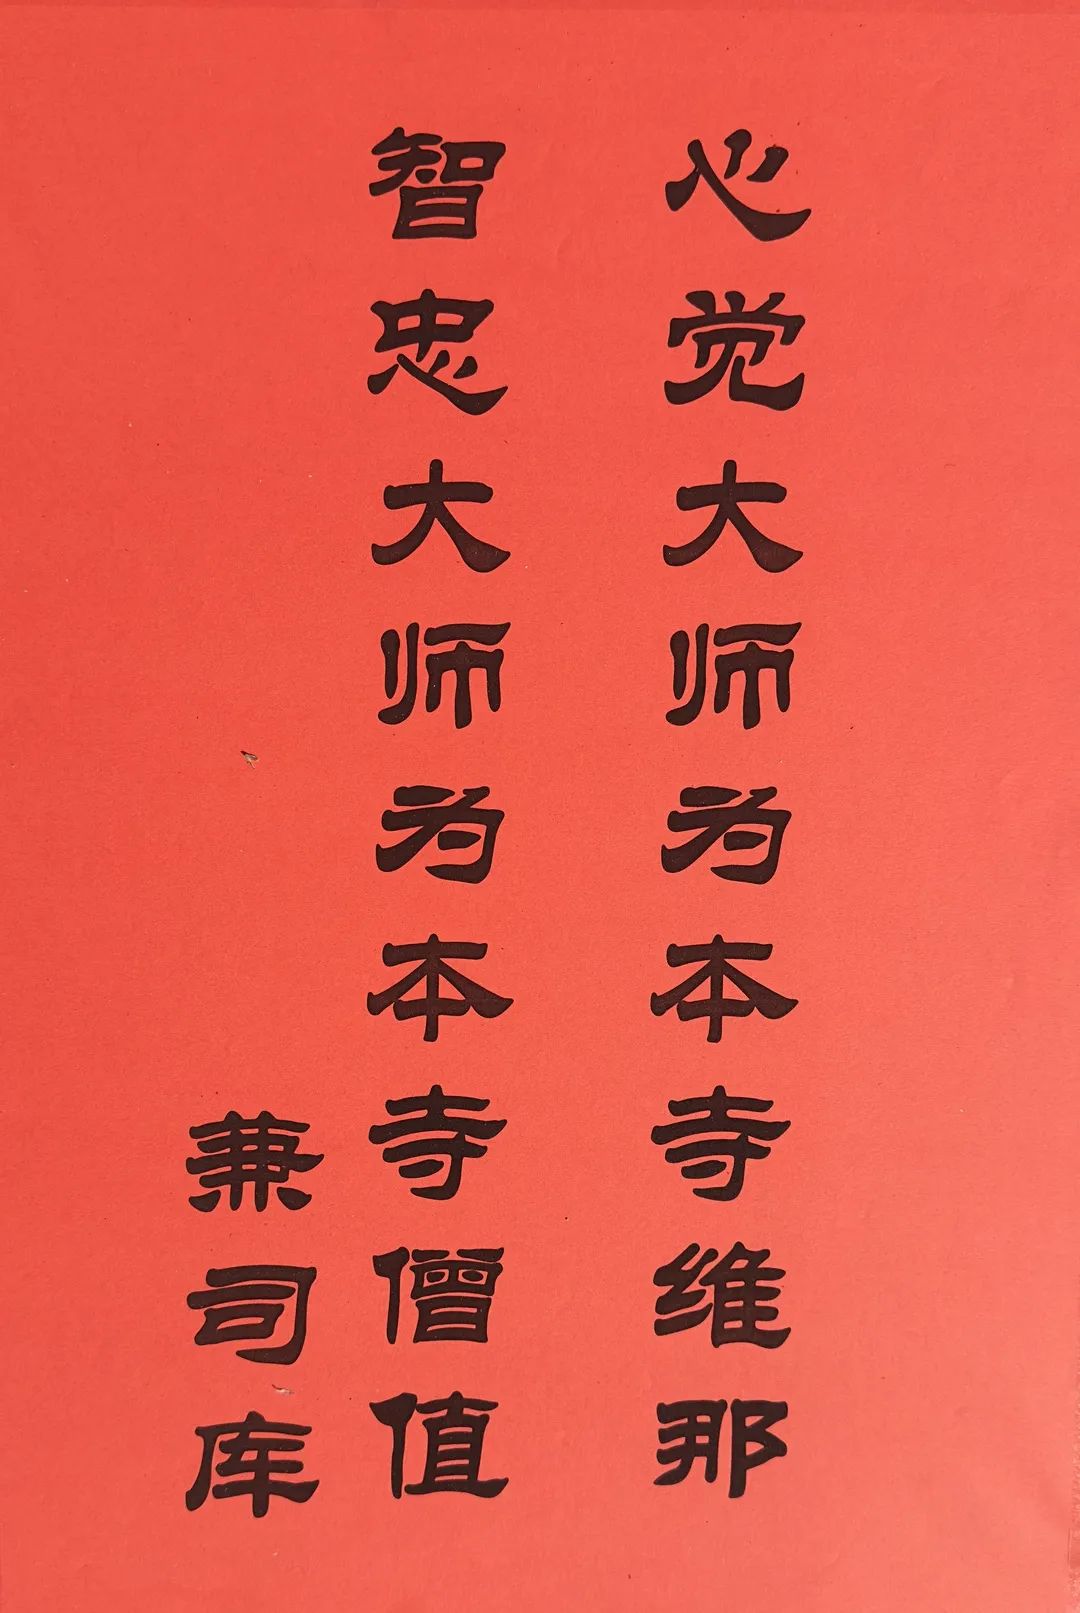 心觉大师为本寺维那
智忠大师为本寺僧值
兼司库